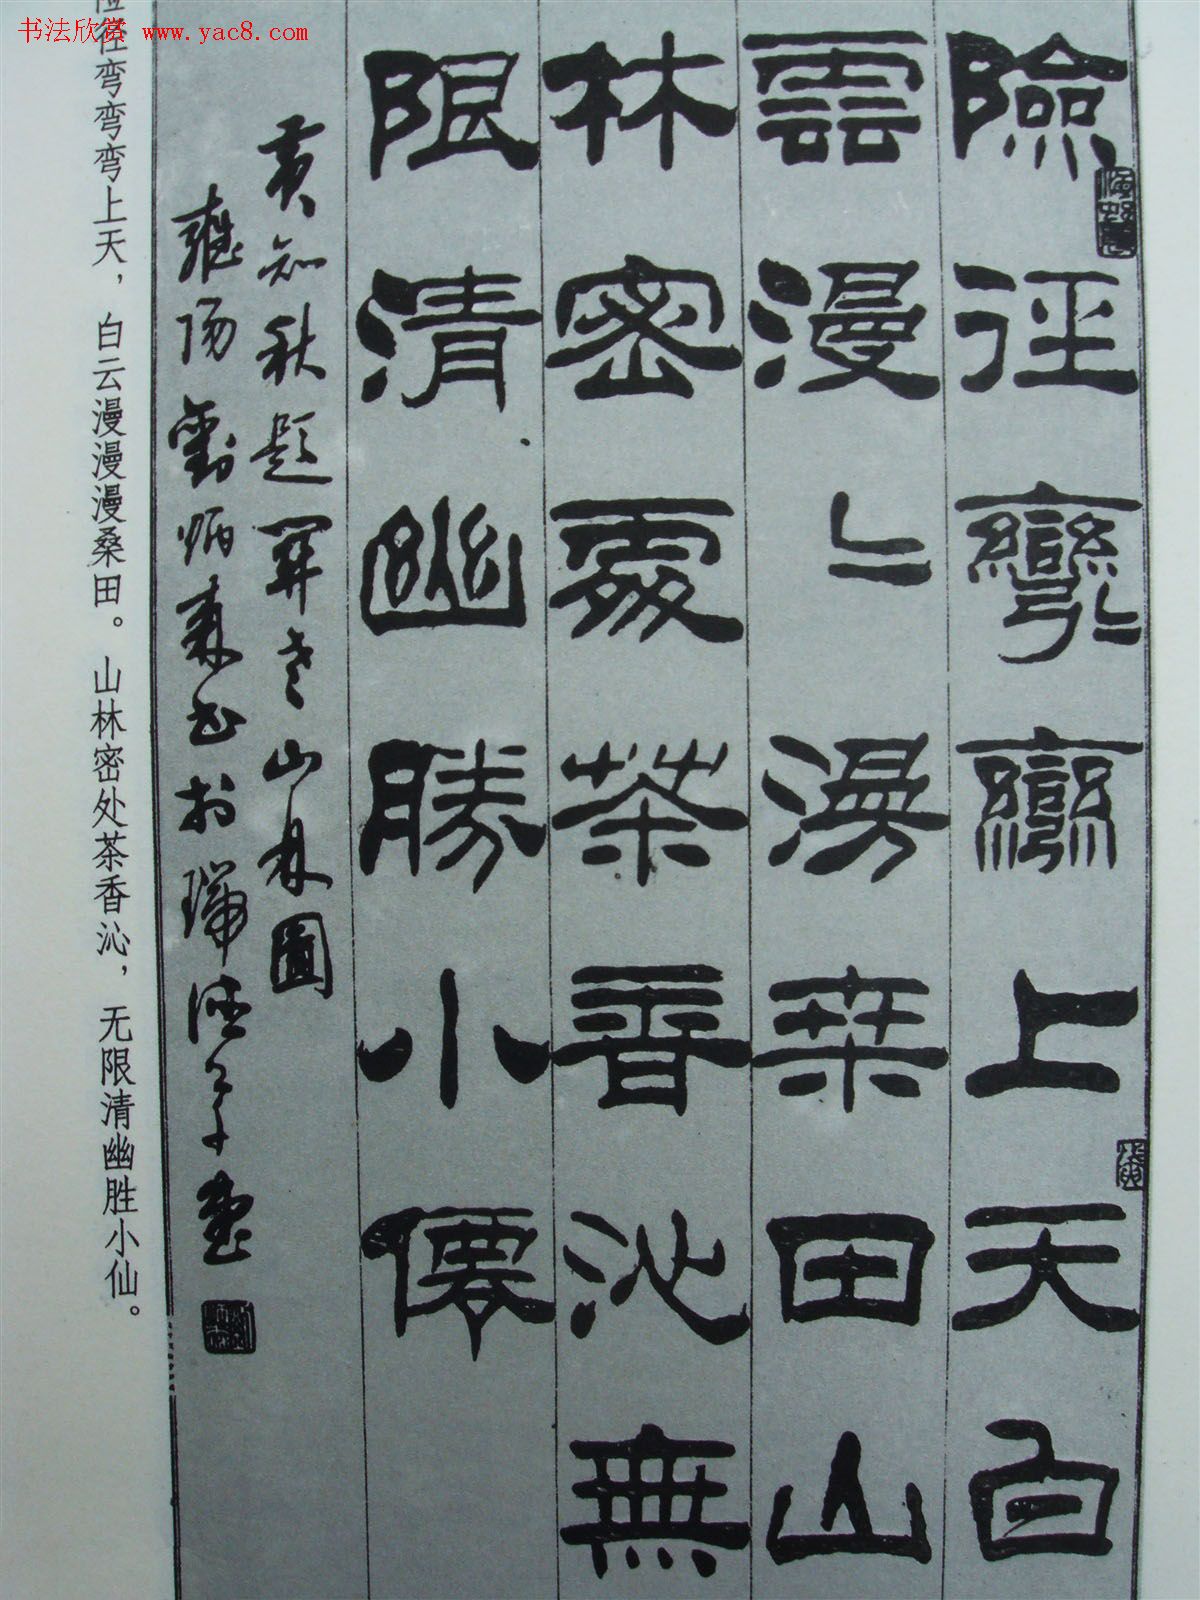 书法欣赏 www.yac8.com
險徑彎〻彎上天白
雲漫〻漫桒田山
林密處茶香沁無
限清幽勝小僊
黄知秋题開老山林圖
雍陽劉炳森书於瑞德草堂
险径弯弯弯上天，白云漫漫漫桑田。山林密处茶香沁，无限清幽胜小仙。